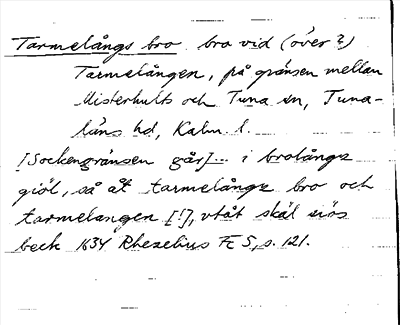 Tarmelångs bro bro vid (över?)
Tarmelången, på gränsen mellan
Misterhults och Tuna sn, Tuna-
läns hd, Kalm. l.
[Sockengränsen går]... i brolångz
giöl, så åt tarmelångz bro och
tarmelangen [!], vtåt skäl siös
beck 1634 Rhezelius Fc 5, s. 121.